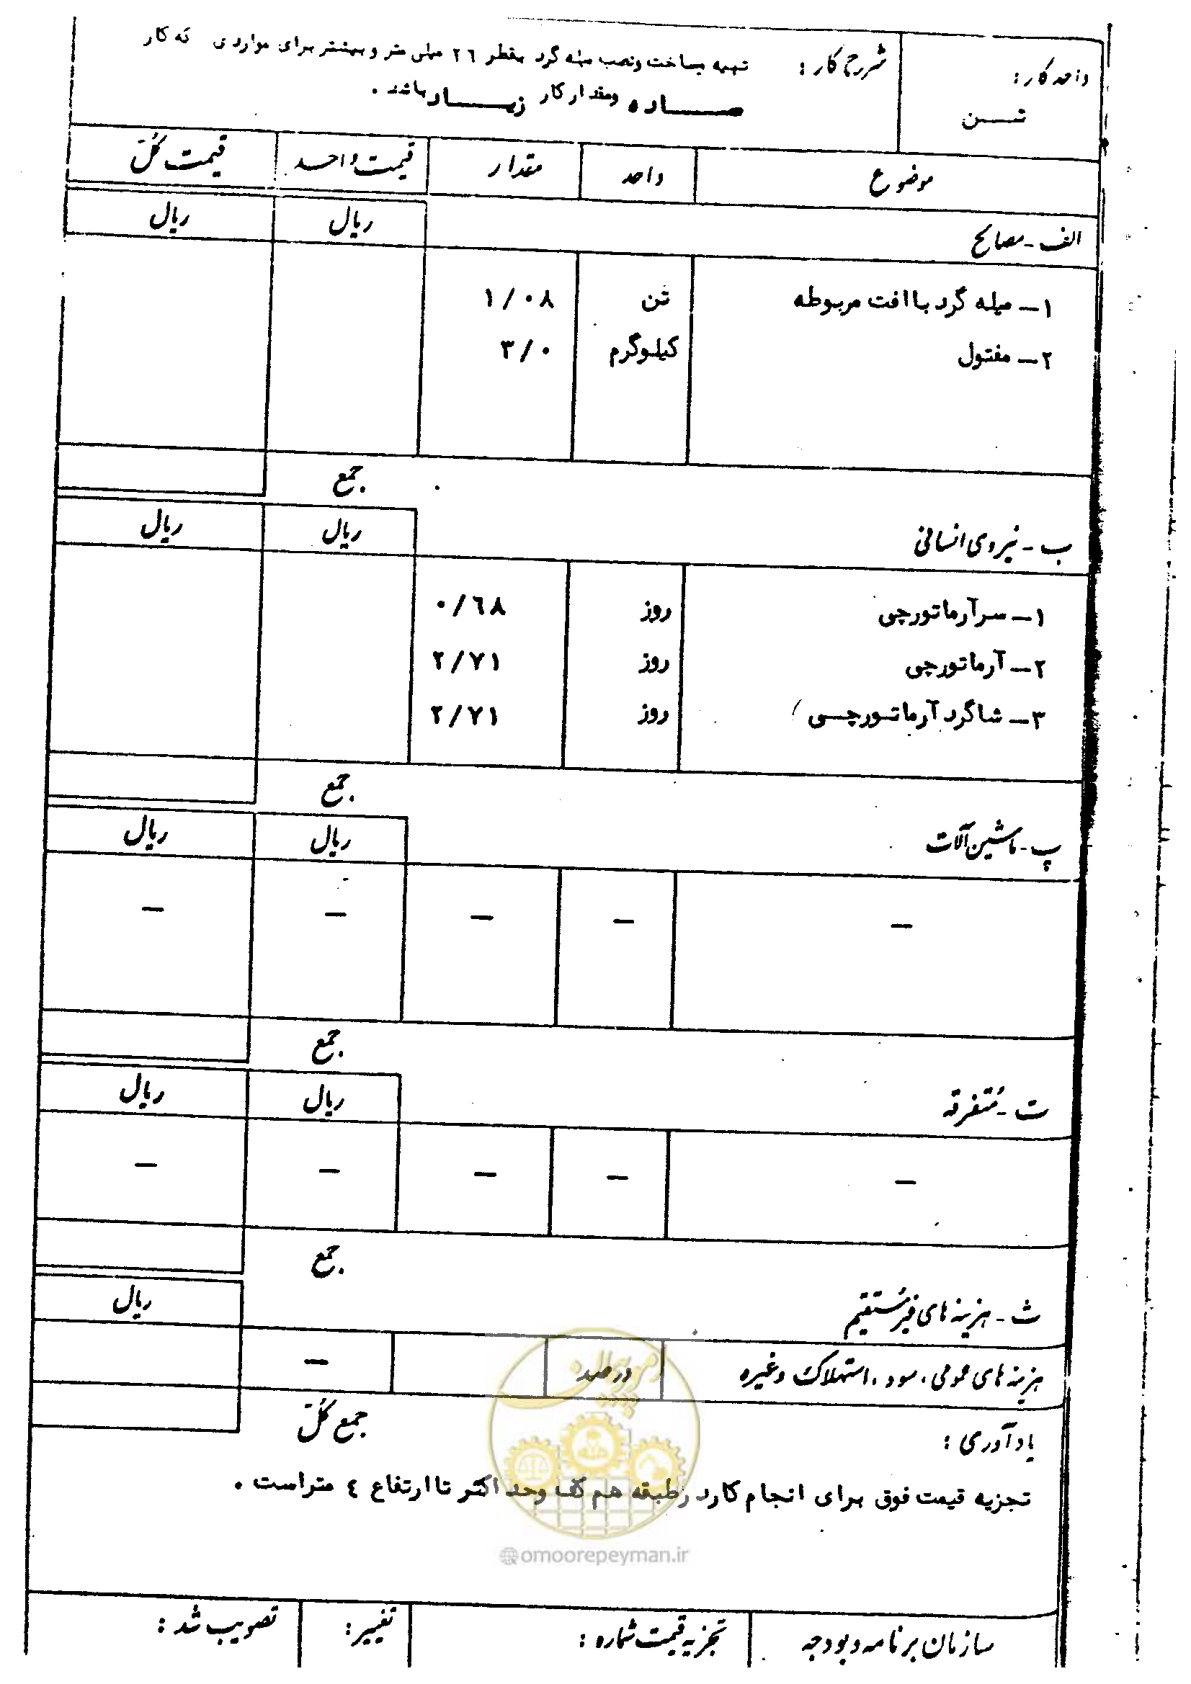 واحد کار :
تـــن
شرح کار : تهیه ساخت ونصب میله گرد بقطر ٢٦ میلی متر و بیشتر برای مواردی که کار
ســـاده ومقدار کار زیـــاد باشد .
موضوع واحد مقدار قیمت واحد قیمت کل
الف - مصالح ریال ریال
١ – میله گرد با افت مربوطه تن ١/٠٨
٢ – مفتول کیلوگرم ٣/٠
جمع
ب - نیروی انسانی ریال ریال
١ – سرآرماتورچی روز ٠/٦٨
٢ – آرماتورچی روز ٢/٧١
٣ – شاگرد آرماتورچی روز ٢/٧١
جمع
پ - ماشین آلات ریال ریال
– – – – –
جمع
ت - متفرقه ریال ریال
– – – – –
جمع
ث - هزینه های غیرمستقیم ریال
هزینه های عمومی ، سود ، استهلاک وغیره درصد –
جمع کل
یادآوری :
تجزیه قیمت فوق برای انجام کار در طبقه هم کف وحد اکثر تا ارتفاع ٤ متراست .
امور پیمان
@omoorepeyman.ir
سازمان برنامه و بودجه تجزیه قیمت شماره : تغییر : تصویب شد :